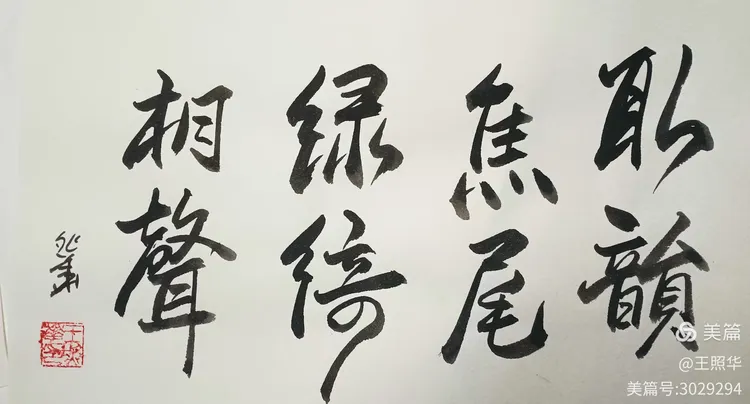 取韻
焦尾
绿绮
相聲
美篇
@王照华
美篇号:3029294